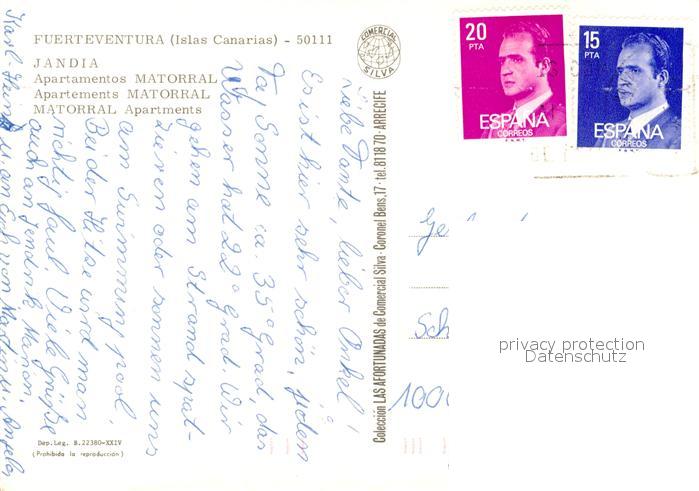 FUERTEVENTURA (Islas Canarias) - 50111
JANDIA
Apartamentos MATORRAL
Apartements MATORRAL
MATORRAL Apartments
COMERCIAL
SILVA
20
PTA
ESPAÑA
CORREOS
F.N.M.T.
15
PTA
ESPAÑA
CORREOS
F.N.M.T.
Liebe Tante, lieber Onkel!
Es ist hier sehr schön, jeden
Tag Sonne ca. 35° Grad, das
Wasser hat 22° Grad. Wir
gehen am Strand spat-
zieren oder sonnen uns
am Swimming pool.
Bei der Hitze wird man
richtig faul. Viele Grüße
auch an
Karl-Heinz
von Martina
Colección LAS AFORTUNADAS de Comercial Silva - Coronel Bens, 17 - tel. 81 18 70 - ARRECIFE
Ge
Sch
100
privacy protection
Datenschutz
Dep. Leg. B. 22380-XXIV
(Prohibida la reproducción)